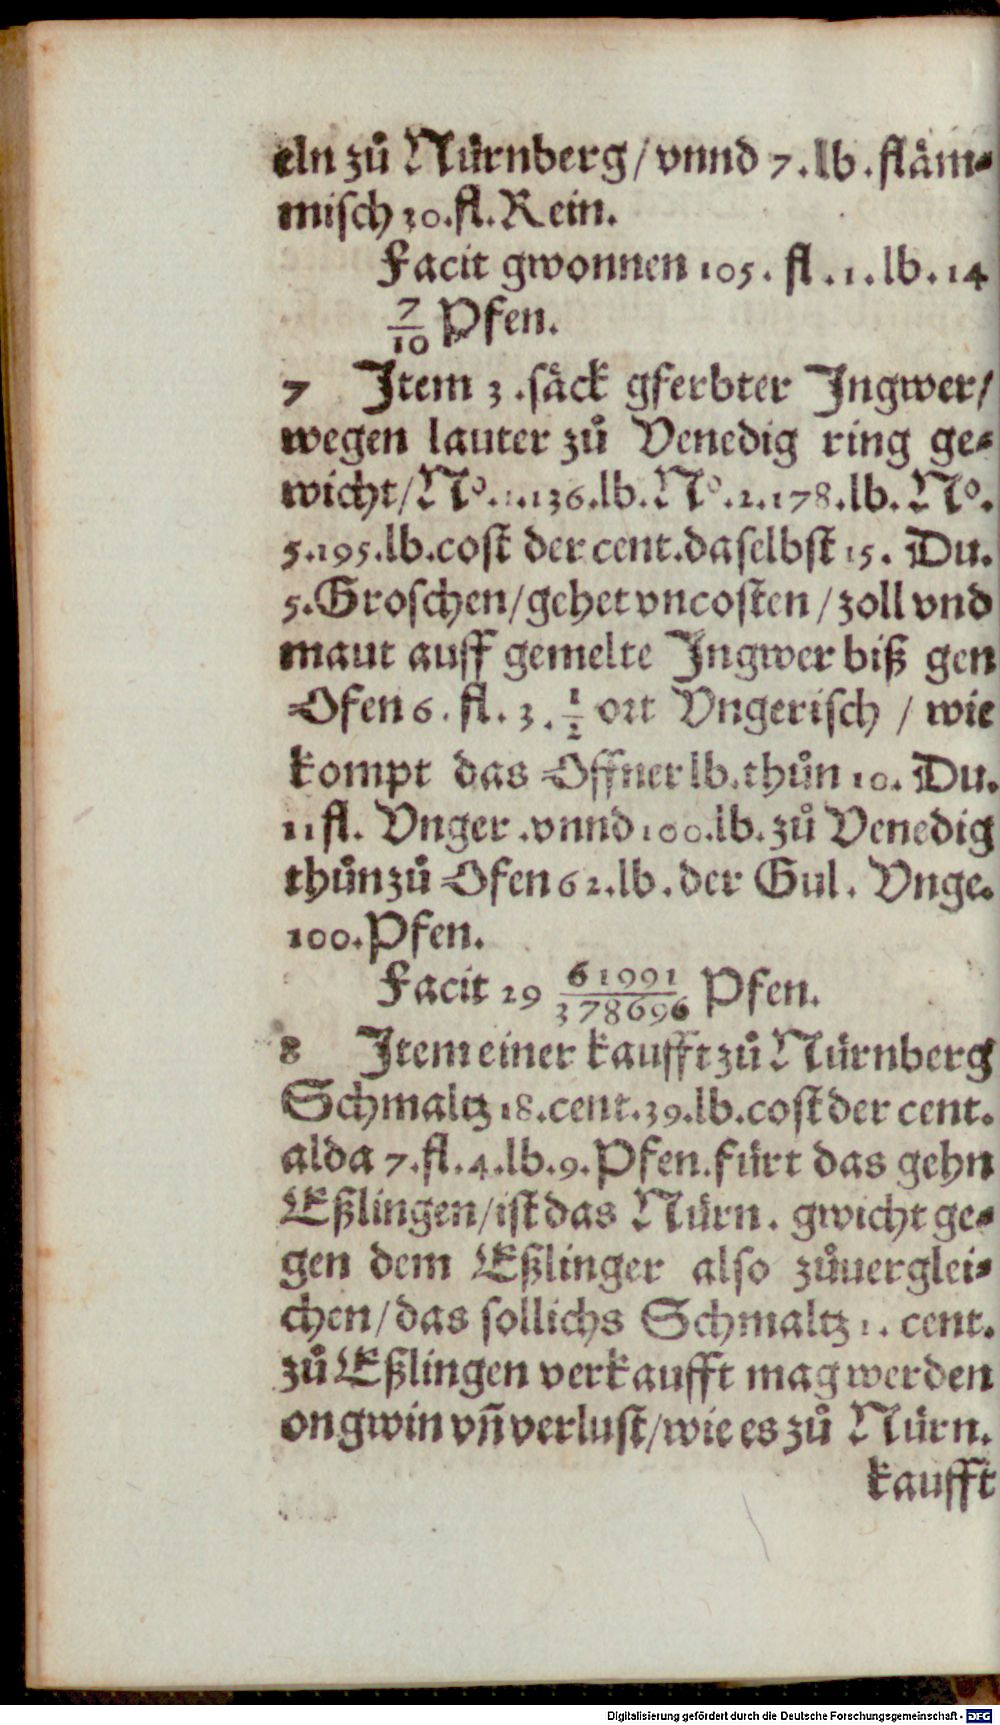 eln zů Nürnberg / vnnd 7. lb. fläm⸗
misch 30. fl. Rein.
Facit gwonnen 105. fl. 1. lb. 14
7/10 Pfen.
7 Item 3. säck gferbter Ingwer/
wegen lauter zů Venedig ring ge⸗
wicht / Nº. 1. 136. lb. Nº. 2. 178. lb. Nº.
5. 195. lb. cost der cent. daselbst 15. Du.
5. Groschen / gehet vncosten / zoll vnd
maut auff gemelte Ingwer biß gen
Ofen 6. fl. 3. 1/2 ort Vngerisch / wie
kompt das Offner lb. thůn 10. Du.
11 fl. Vnger. vnnd 100. lb. zů Venedig
thůn zů Ofen 62. lb. der Gul. Vnge.
100. Pfen.
Facit 29 61991/378696 Pfen.
8 Item einer kaufft zů Nürnberg
Schmaltz 18. cent. 39. lb. cost der cent.
alda 7. fl. 4. lb. 9. Pfen. fürt das gehn
Eßlingen / ist das Nürn. gwicht ge⸗
gen dem Eßlinger also zůuerglei⸗
chen / das sollichs Schmaltz 1. cent.
zů Eßlingen verkaufft mag werden
on gwin vñ verlust / wie es zů Nürn.
kaufft
Digitalisierung gefördert durch die Deutsche Forschungsgemeinschaft - DFG